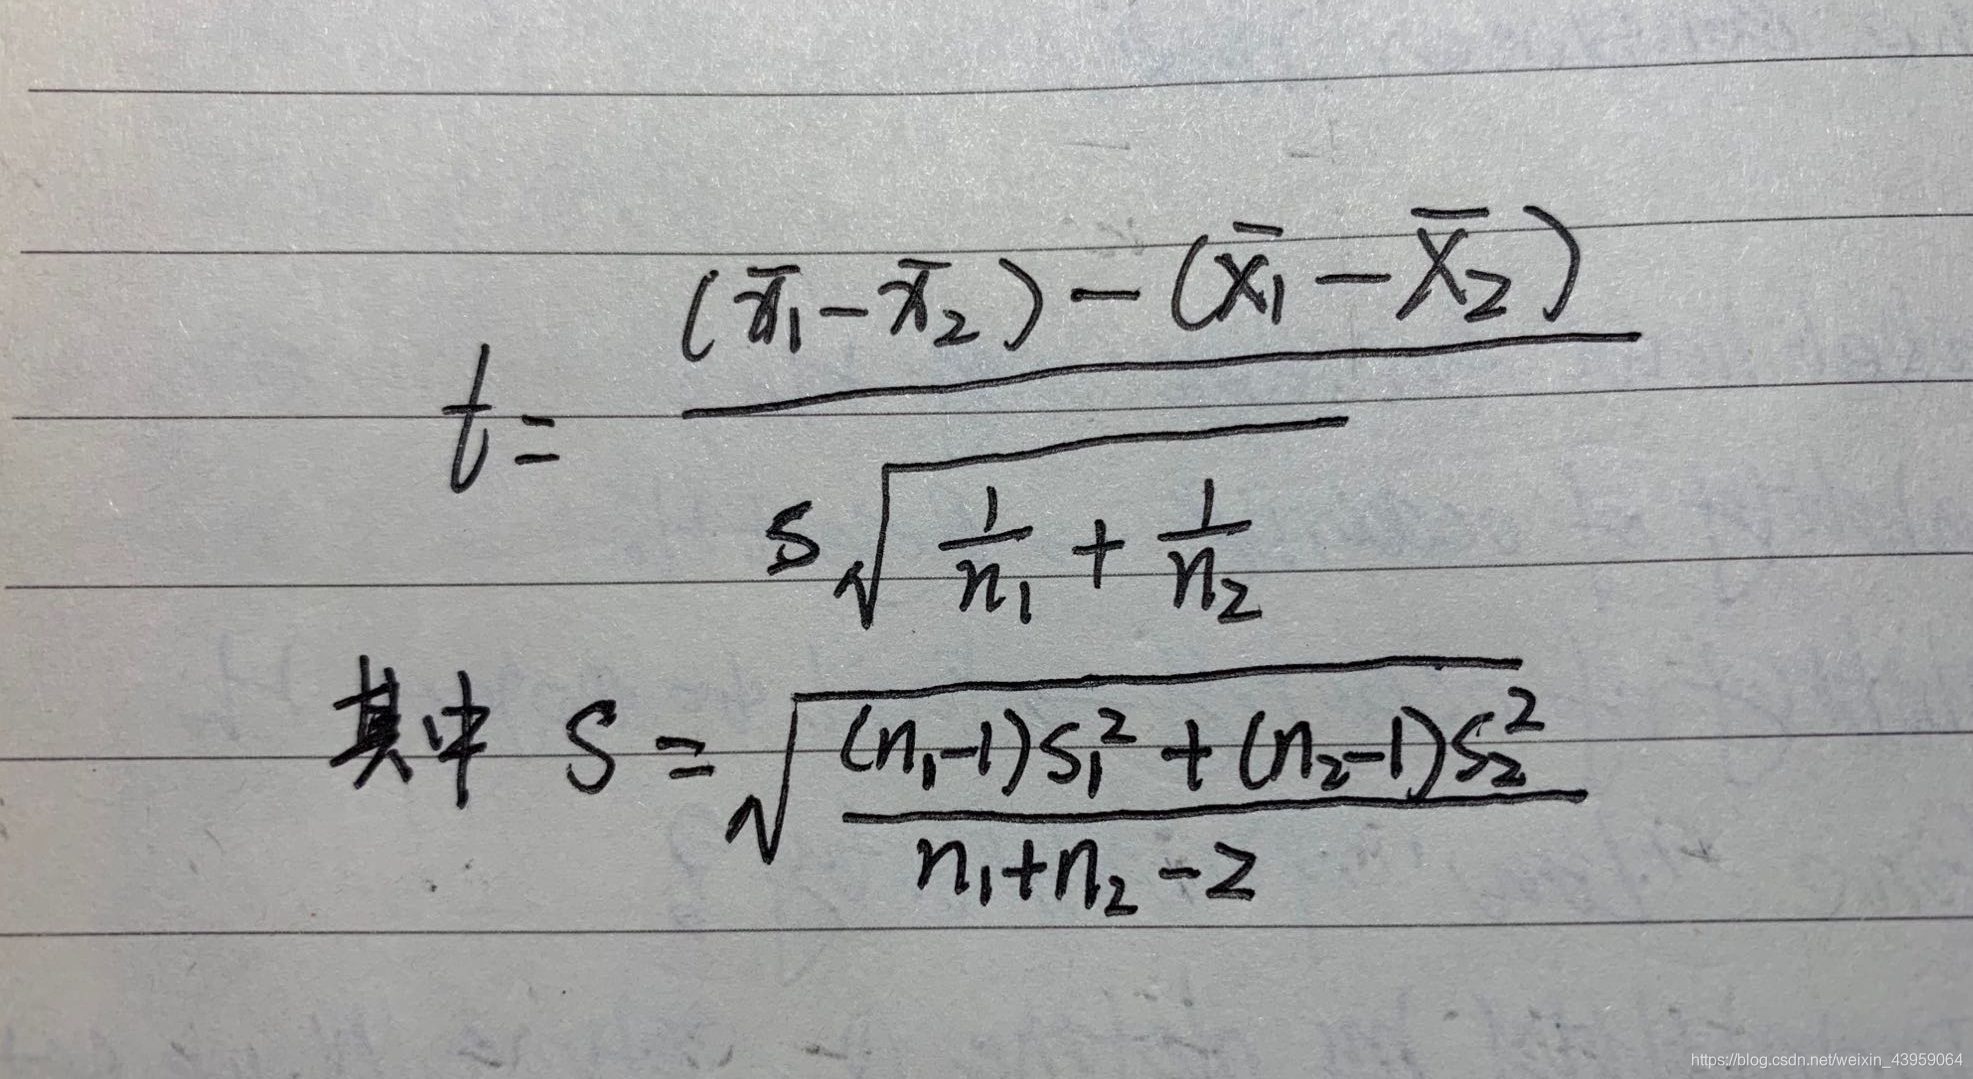 t = \frac{(\bar{x}_1 - \bar{x}_2) - (\bar{X}_1 - \bar{X}_2)}{s\sqrt{\frac{1}{n_1} + \frac{1}{n_2}}}
其中 S = \sqrt{\frac{(n_1-1)S_1^2 + (n_2-1)S_2^2}{n_1+n_2-2}}
https://blog.csdn.net/weixin_43959064